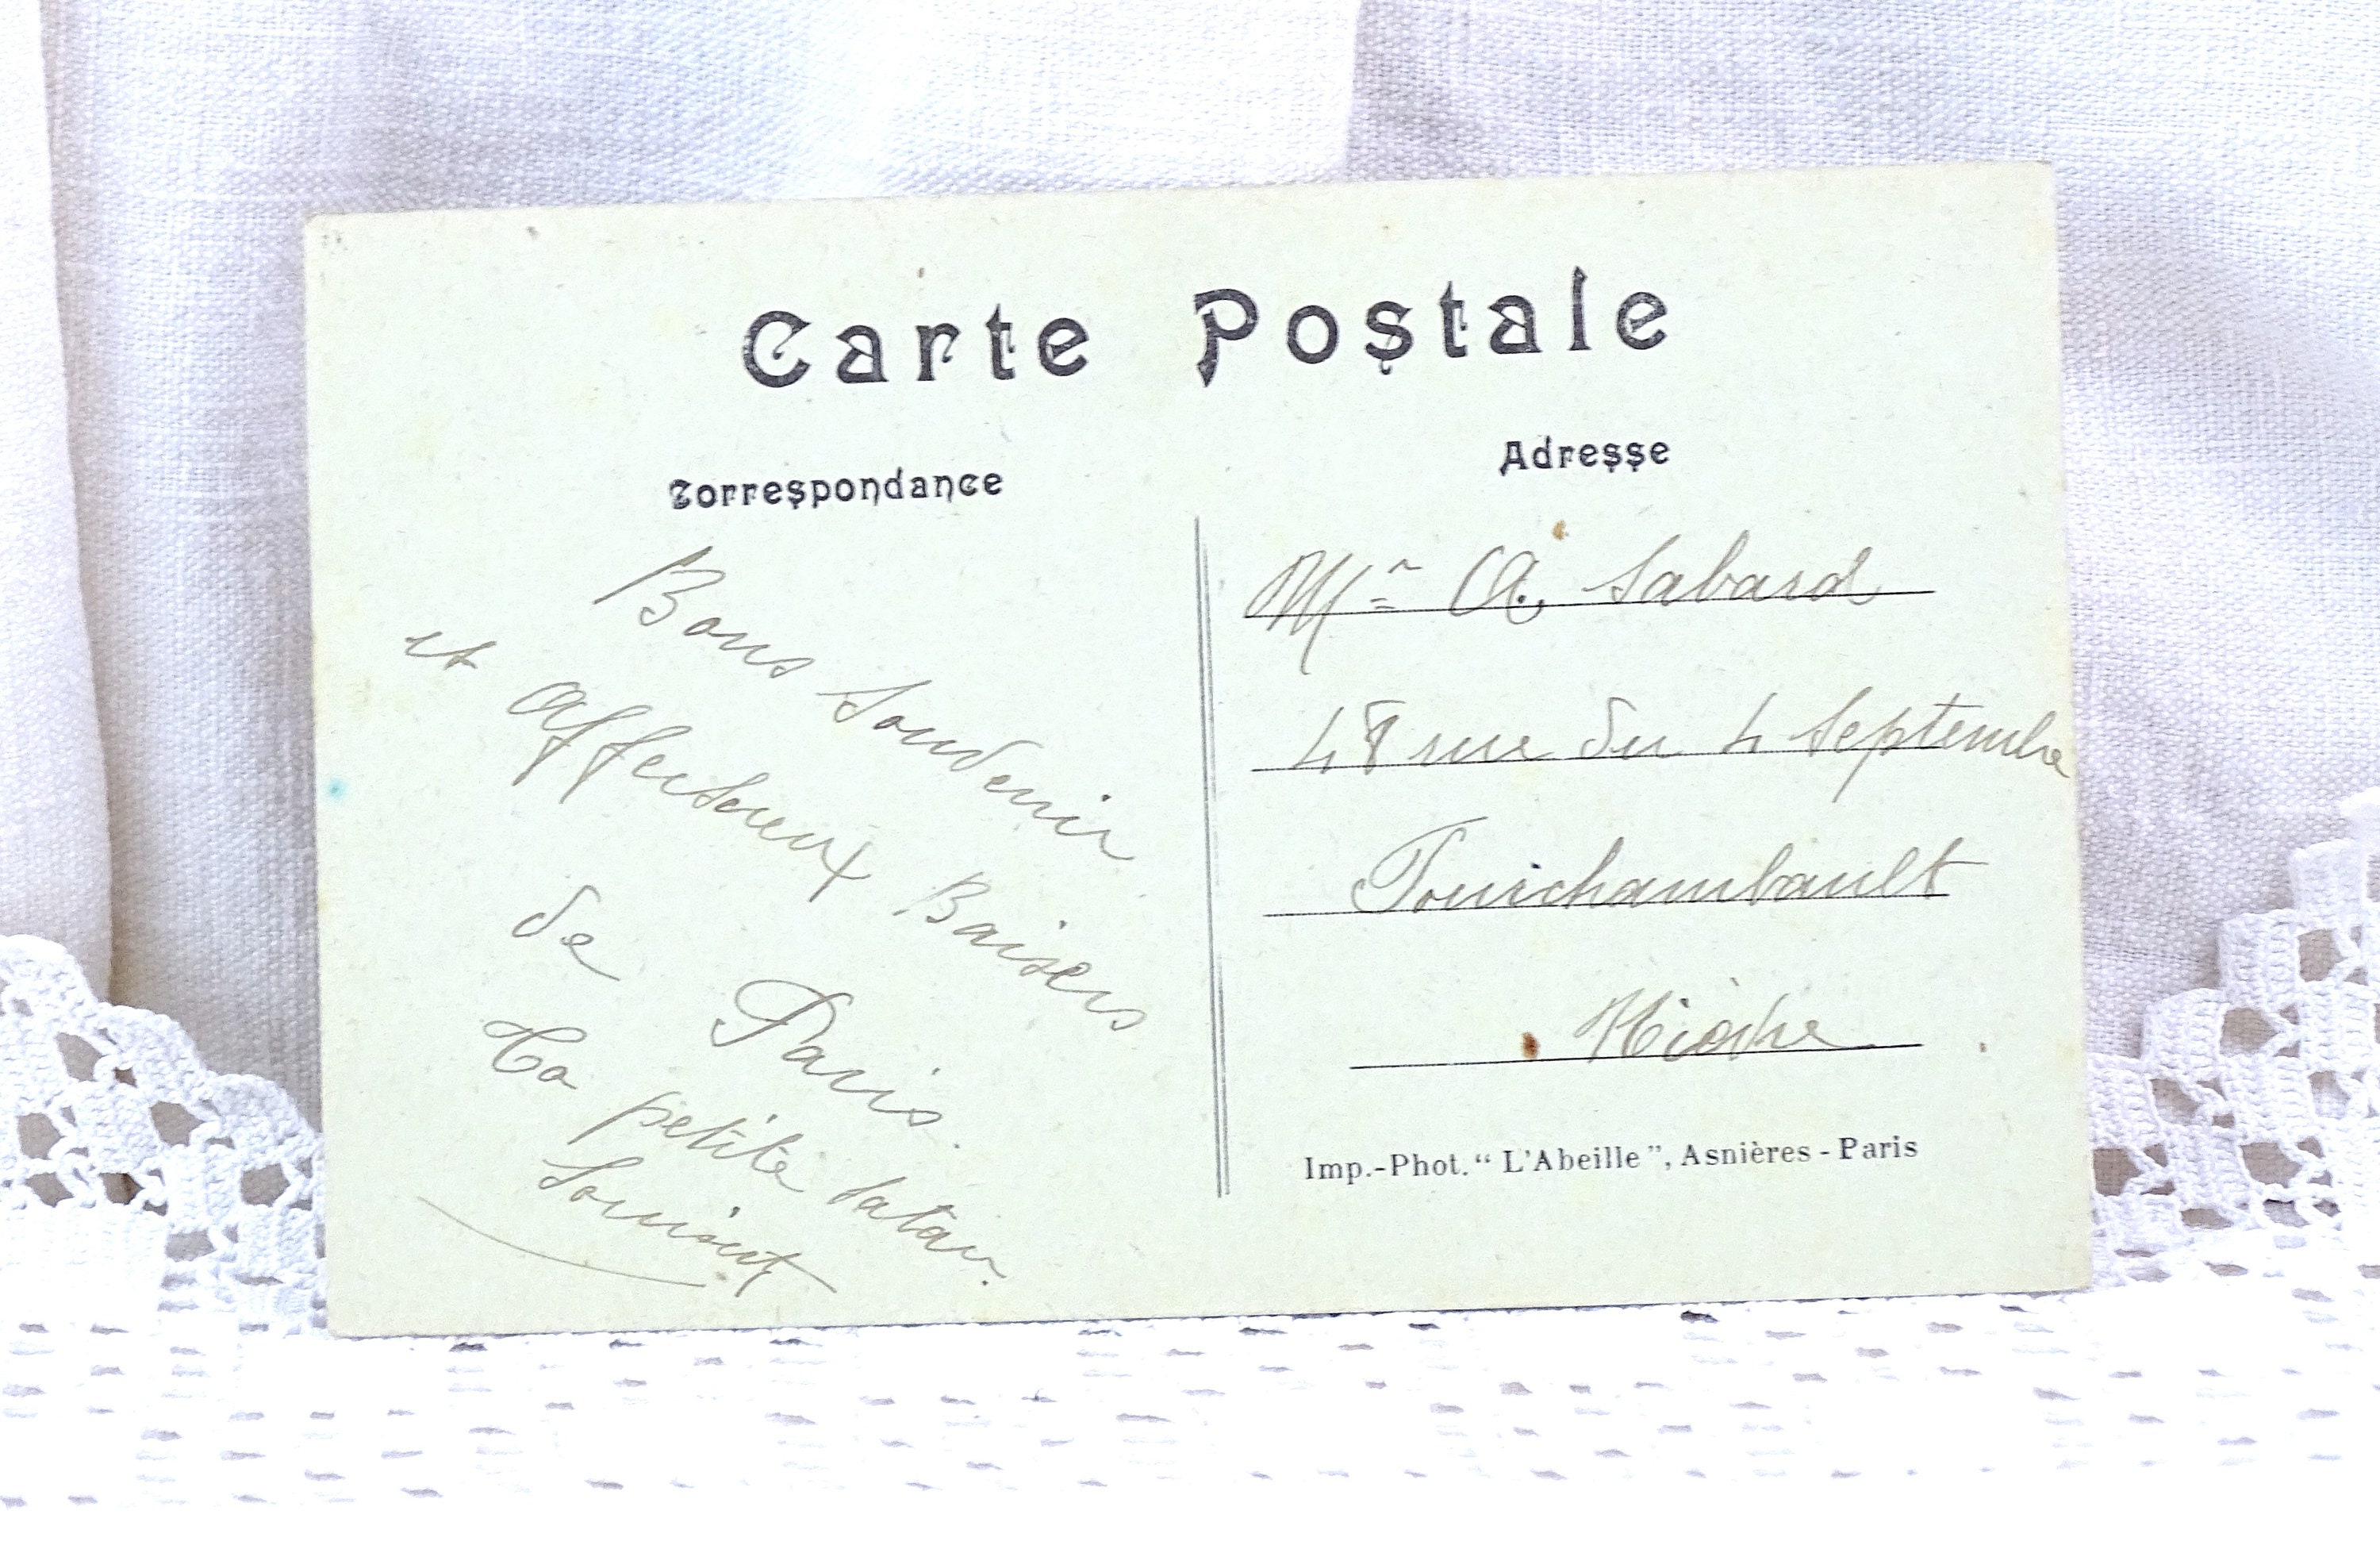 Carte Postale
Correspondance
Bons Souvenir
et affectueux Baisers
de Paris.
Ta petite
Adresse
Mr A. Sabard
48 rue du 4 Septembre
Fourchambault
Nièvre
Imp.-Phot. “ L'Abeille ”, Asnières - Paris